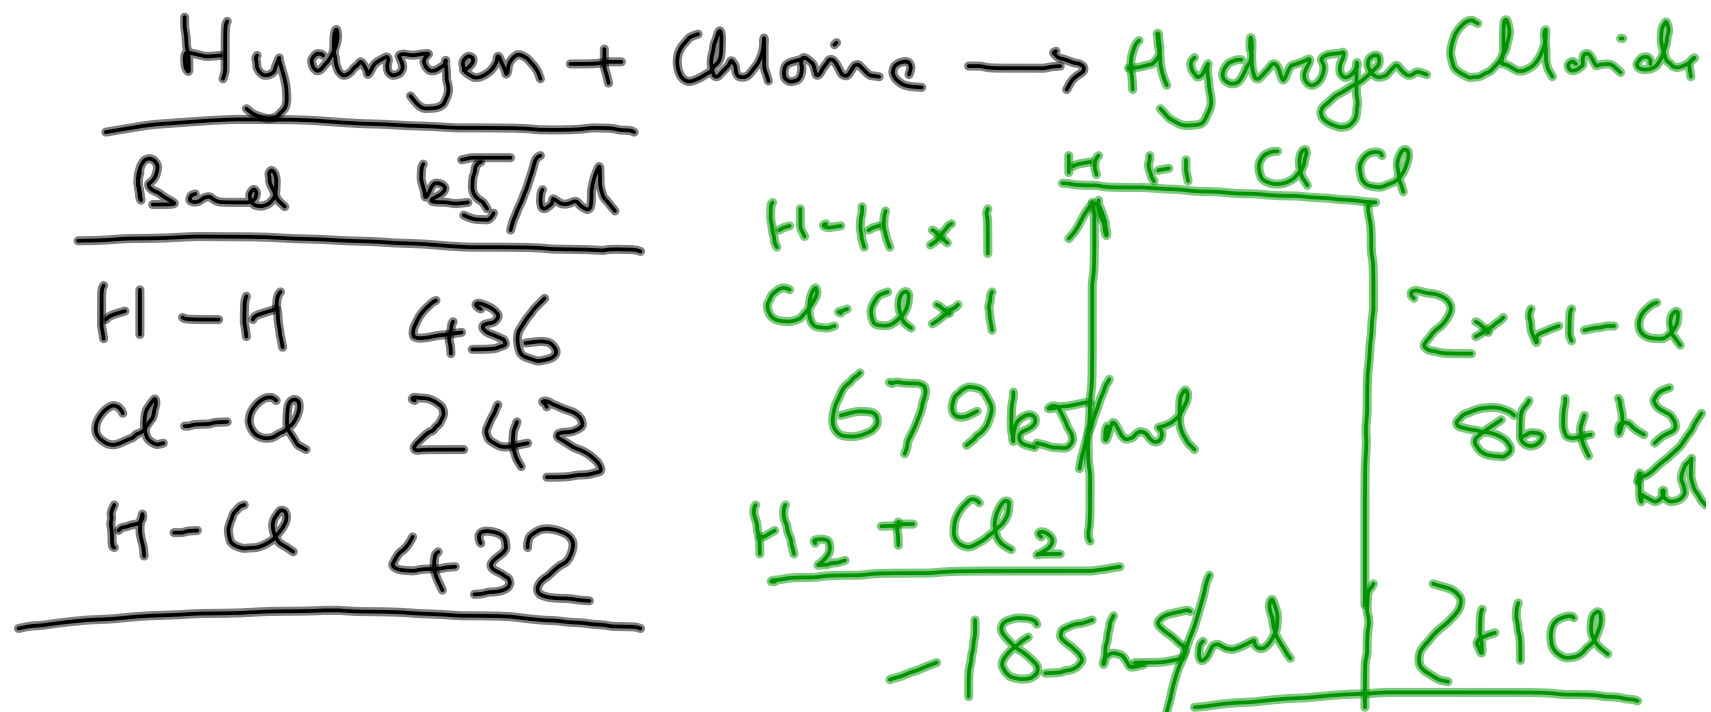 Hydrogen + Chlorine → Hydrogen Chloride
Bond kJ/mol
H-H 436
Cl-Cl 243
H-Cl 432
H H Cl Cl
H-H x 1
Cl-Cl x 1
679 kJ/mol
H₂ + Cl₂
2 x H-Cl
864 kJ/mol
-185 kJ/mol
2HCl